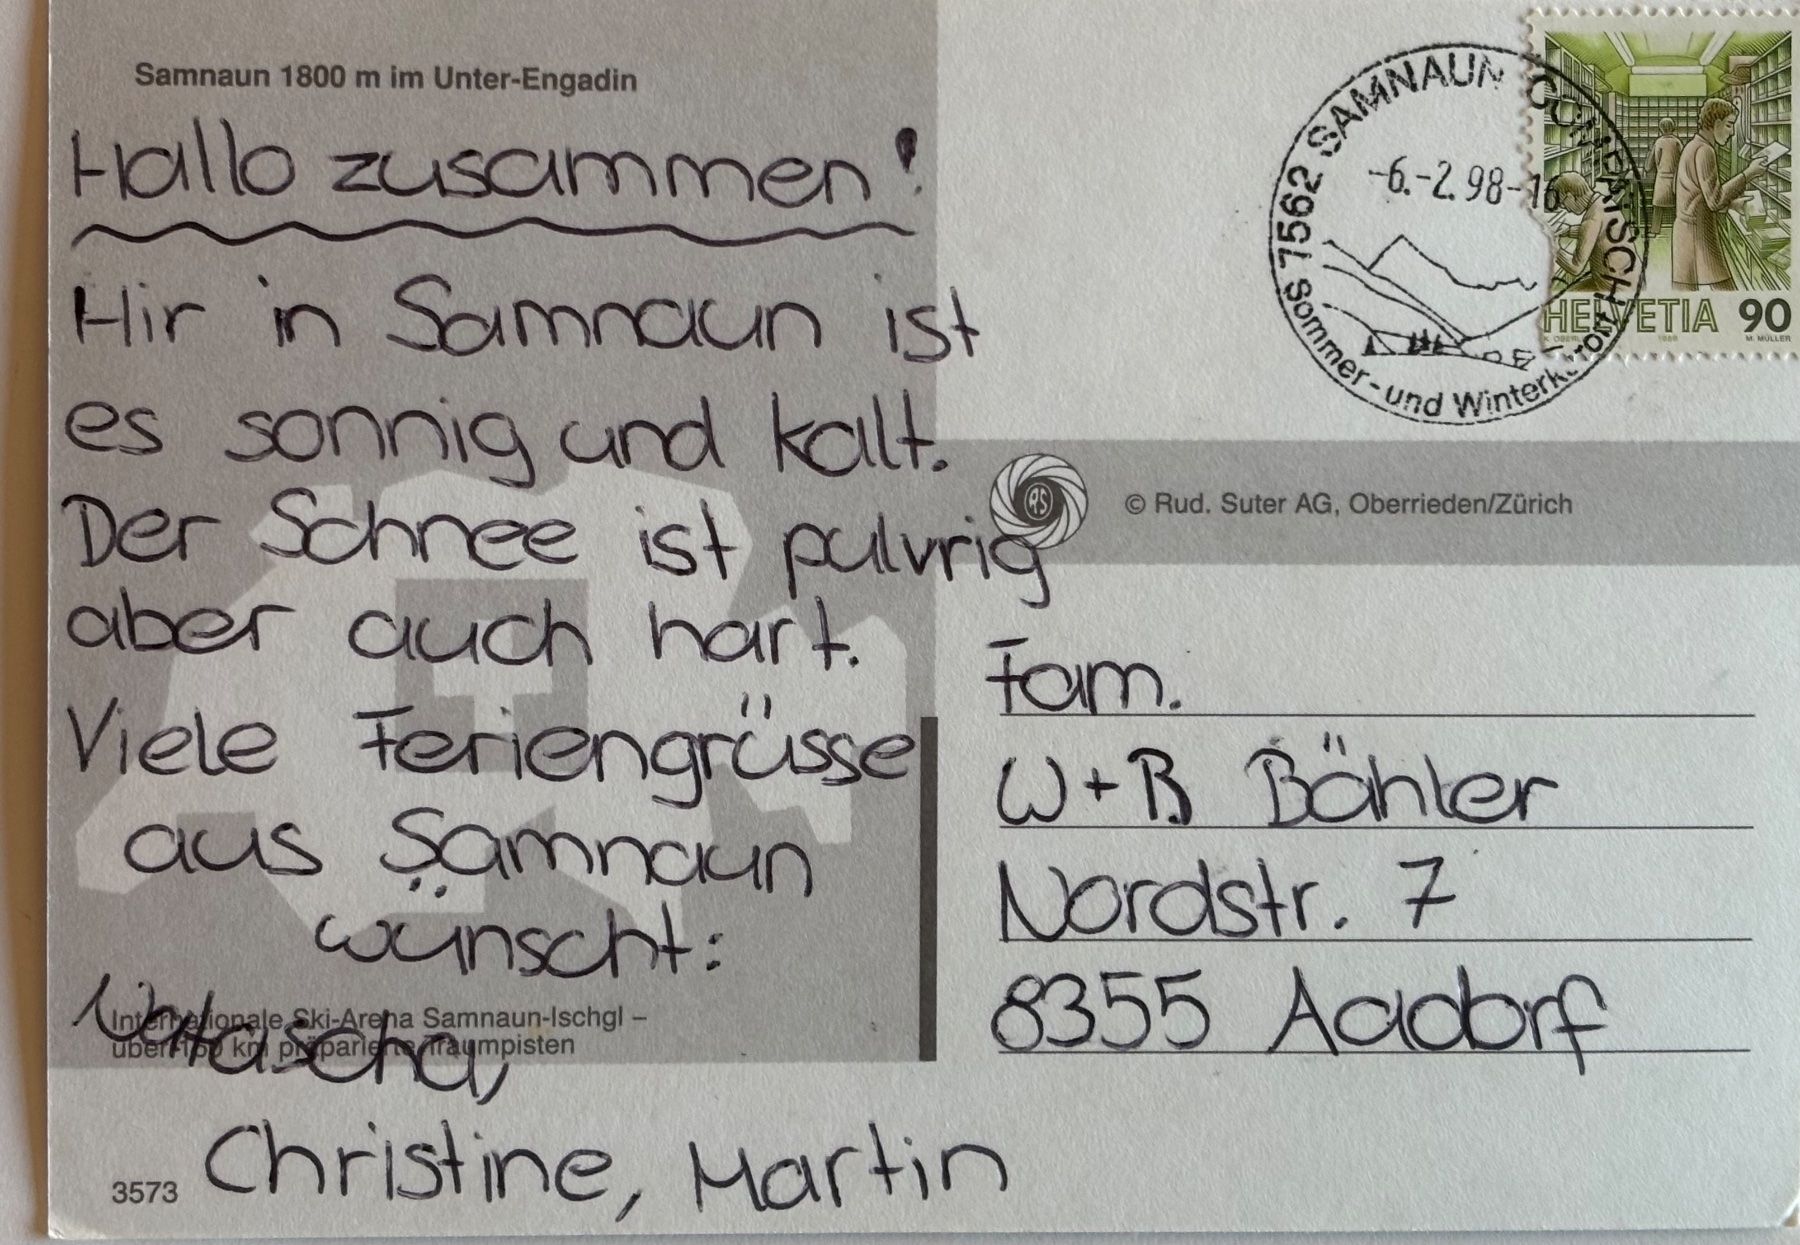 Samnaun 1800 m im Unter-Engadin
Hallo zusammen!
Hir in Samnaun ist
es sonnig und kalt.
Der Schnee ist pulvrig
aber auch hart.
Viele Feriengrüsse
aus Samnaun
wünscht:
Natascha,
Christine, Martin
Internationale Ski-Arena Samnaun-Ischgl –
über 150 km präparierte Traumpisten
3573
7562 SAMNAUN COMPATSCH
-6.-2.98-16
Sommer- und Winterkurort
HELVETIA 90
M. MÜLLER
RS
© Rud. Suter AG, Oberrieden/Zürich
Fam.
W+B Bähler
Nordstr. 7
8355 Aadorf